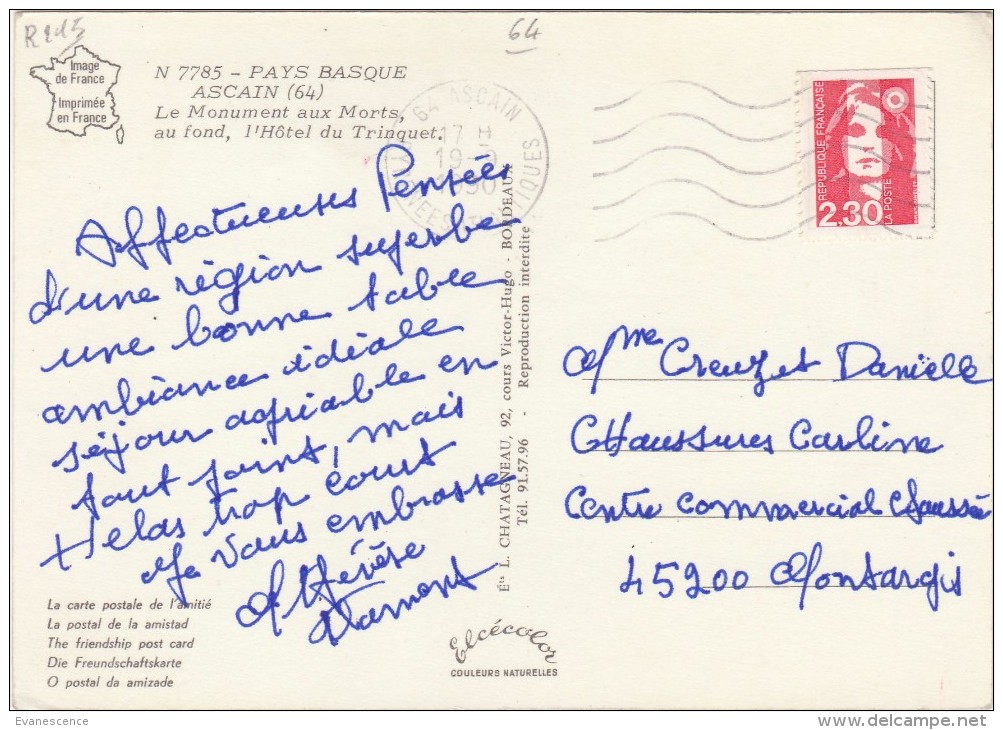 R205
64
Image
de France
Imprimée
en France
N 7785 – PAYS BASQUE
ASCAIN (64)
Le Monument aux Morts,
au fond, l'Hôtel du Trinquet.
64 ASCAIN
17 H
19-9
1990
PYRENEES ATLANTIQUES
REPUBLIQUE FRANÇAISE
2,30
LA POSTE
Affectueuses Pensées
d'une région superbe
une bonne table
ambiance idéale
séjour agréable en
tout point, mais
Helas trop court
Je vous embrasse
Thérèse
Éts L. CHATAGNEAU, 92, cours Victor-Hugo - BORDEAUX
Tél. 91.57.96 - Reproduction interdite
Mme Creuzet Danielle
CHaussures Carline
Centre Commercial Chaussée
45200 Montargis
La carte postale de l'amitié
La postal de la amistad
The friendship post card
Die Freundschaftskarte
O postal da amizade
Elcécolor
COULEURS NATURELLES
Evanescence
delcampe.net